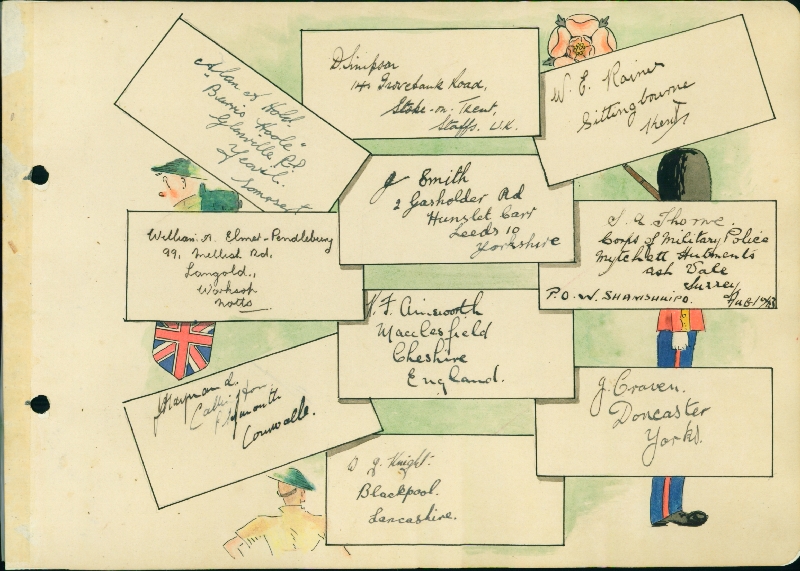 Alan A. Hold
"Burris Hoole"
Glenville Rd
Yeovil.
Somerset
D. Simpson
141 Grovebank Road,
Stoke-on-Trent,
Staffs. U.K.
W. E. Rainer
Sittingbourne
Kent
J Smith
2 Gasholder Rd
Hunslet Carr
Leeds 10
Yorkshire
William A. Elmer-Pendlebury
99, Mellish Rd,
Langold,,
Worksop
Notts
Thorne.
Corps of Military Police
Mytchett Hutments
Ash Vale
Surrey
P.O.W. SHAMSHUIPO.
F. Ainsworth
Macclesfield
Cheshire
England.
Plymouth
Cornwalle.
J. Craven.
Doncaster
Yorks.
J. Knight.
Blackpool.
Lancashire.